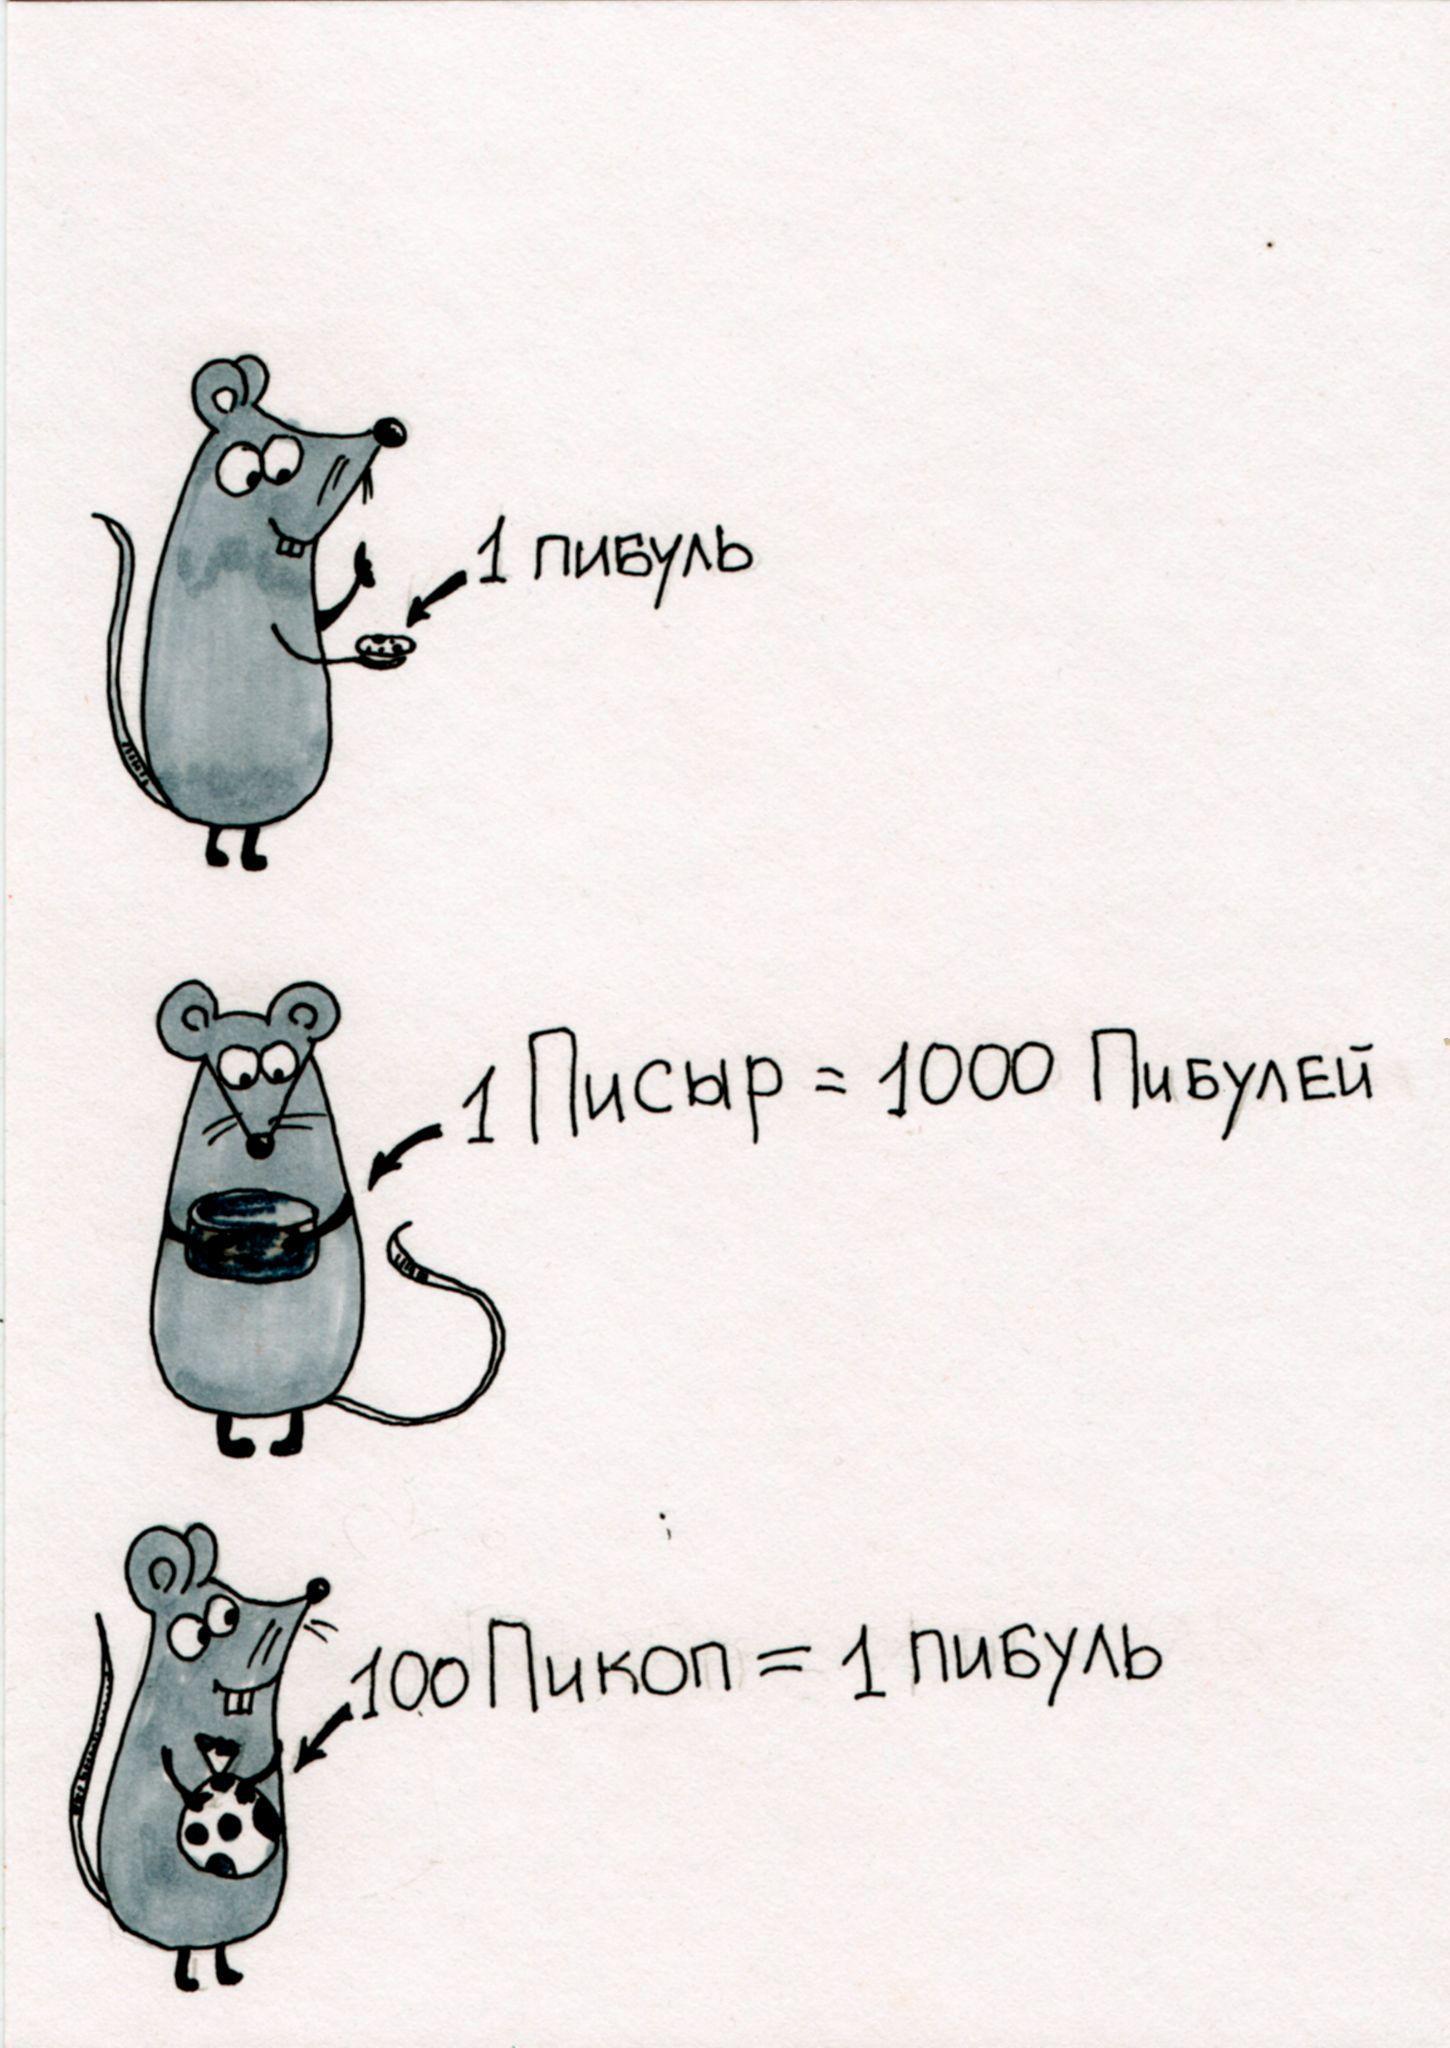 1 пибуль
1 Писыр = 1000 Пибулей
100 Пикоп = 1 пибуль